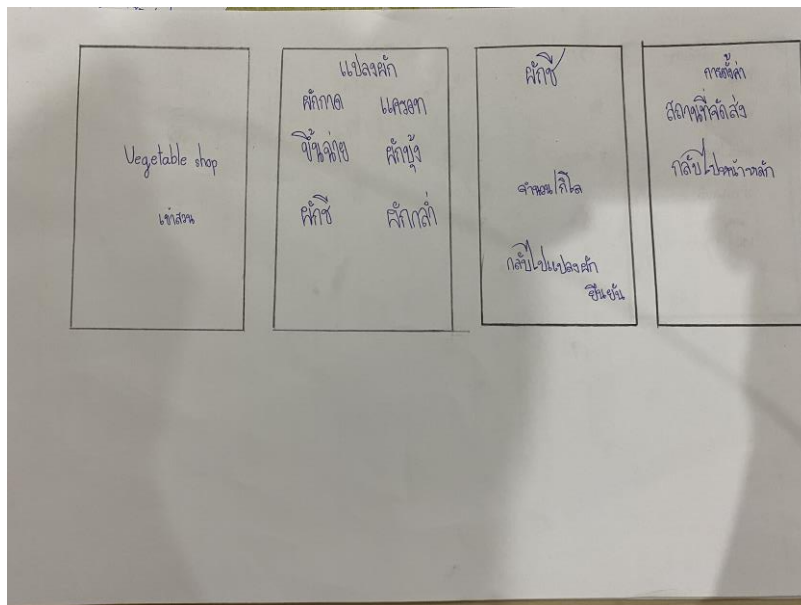 Vegetable shop
เข้าสวน
แปลงผัก
ผักกาด แครอท
ขึ้นฉ่าย ผักบุ้ง
ผักชี ผักกล่ำ
ผักชี
จำนวน/กิโล
กลับไปแปลงผัก
ยืนยัน
การตั้งค่า
สถานที่จัดส่ง
กลับไปหน้าหลัก